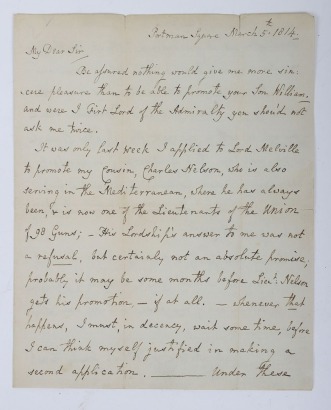 Portman Square March 5th 1814.
My Dear Sir
Be assured nothing would give me more sin:
cere pleasure than to be able to promote your Son William,
and were I First Lord of the Admiralty you should not
ask me twice.
It was only last week I applied to Lord Melville
to promote my Cousin, Charles Nelson, who is also
serving in the Mediterranean, where he has always
been, & is now one of the Lieutenants of the Union
of 98 Guns; – His Lordship's answer to me was not
a refusal, but certainly not an absolute promise;
probably it may be some months before Lieut. Nelson
gets his promotion, – if at all. – Whenever that
happens, I must, in decency, wait some time, before
I can think myself justified in making a
second application. ——— Under these